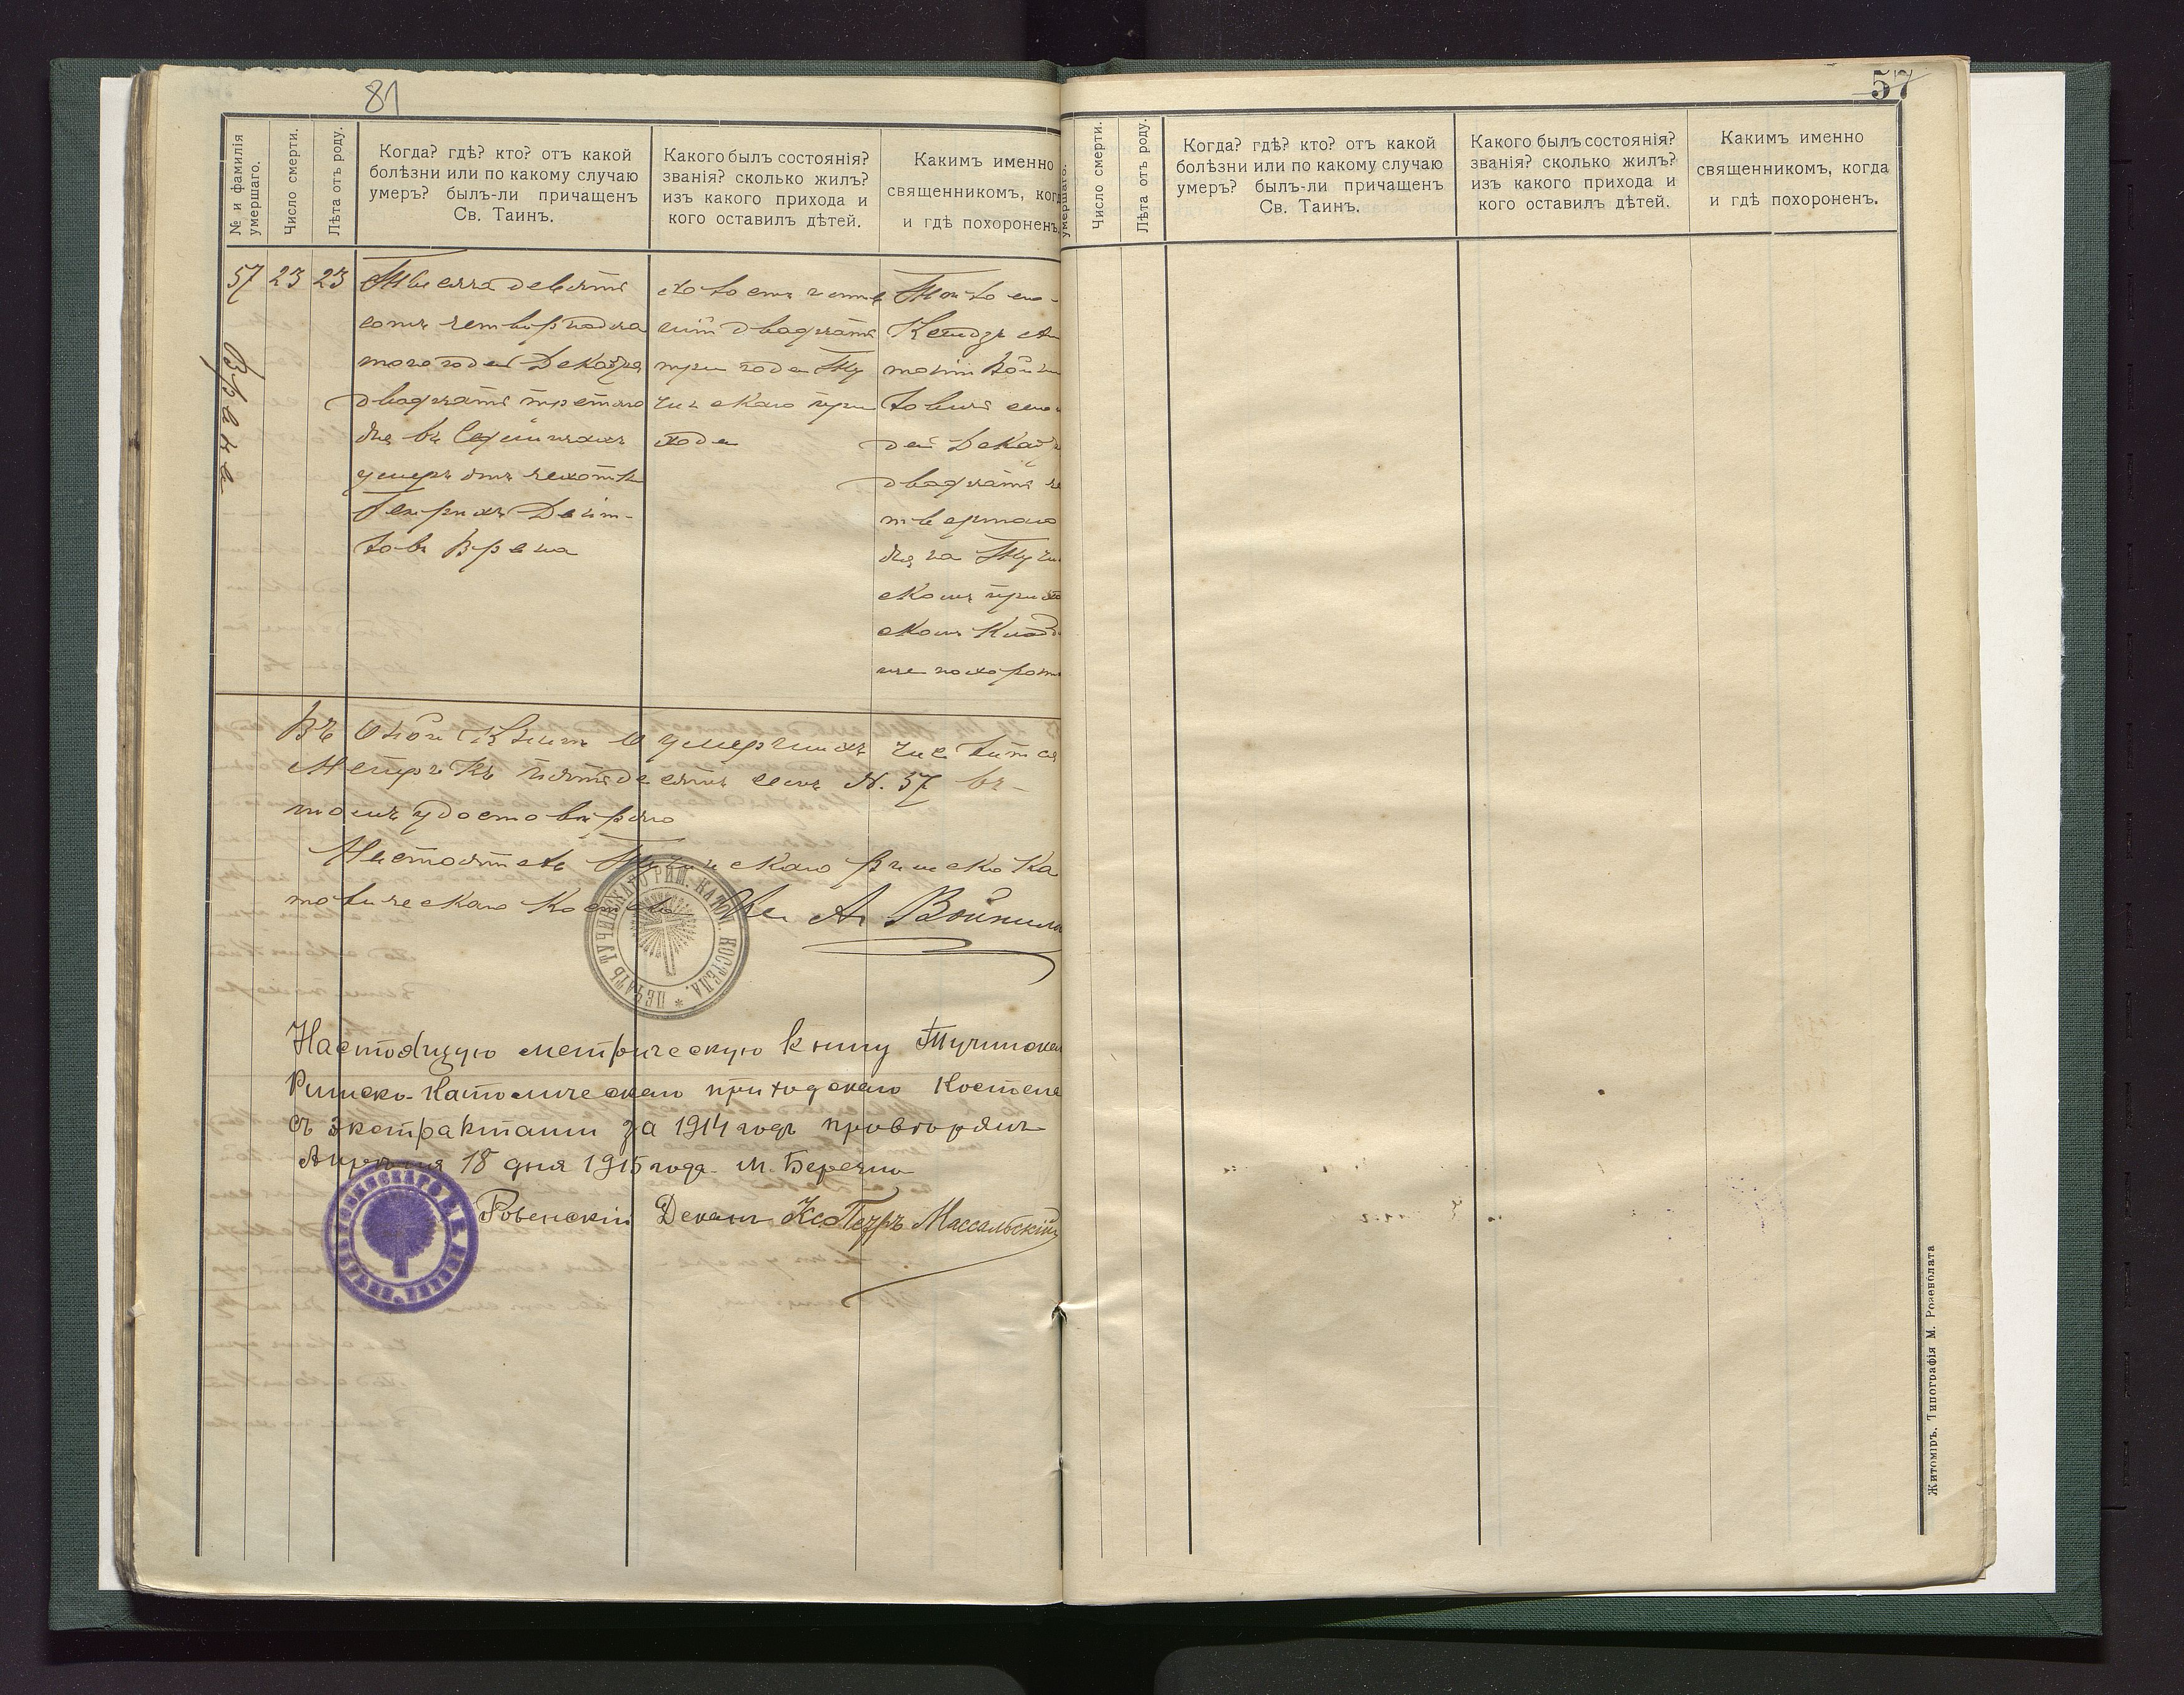 81
57
№ и фамилія
умершаго.
Число смерти.
Лѣта отъ роду.
Когда? гдѣ? кто? отъ какой
болѣзни или по какому случаю
умеръ? былъ-ли причащенъ
Св. Таинъ.
Какого былъ состоянія?
званія? сколько жилъ?
изъ какого прихода и
кого оставилъ дѣтей.
Какимъ именно
священникомъ, когд
и гдѣ похороненъ.
57
23
23
Врена
Тысяча девять
сотъ четырнадца
того года Декабря
двадцать третьяго
дня въ
умеръ отъ чехотки
Генрихъ
Врена
двадцать
три года Ту
чинскаго при
хода
Ксендзъ Ан
тоній Войни
ловичъ сего
да Декабр
двадцать че
твертаго
дня на Тучи
скомъ прихо
скомъ Кладб
ще похорон
Въ сной Книгѣ о умершихъ числится
Метрикъ пятьдесятъ семь N. 57 въ
томъ удостовѣряю
Настоятель Тучинскаго Римско Ка
толическаго Костела Кс. Ан Войнило
ПЕЧАТЬ ТУЧИНСКАГО РИМ. КАТОЛ. КОСТЕЛА.
Настоящую метрическую книгу Тучинска
Римско-Католическаго приходскаго Костела
съ экстрактами за 1914 годъ провѣрялъ
Апрѣля 18 дня 1915 года. м. Березно
Ровенскій Деканъ Кс. Петръ Массальскій
умершаго.
Число смерти.
Лѣта отъ роду.
Когда? гдѣ? кто? отъ какой
болѣзни или по какому случаю
умеръ? былъ-ли причащенъ
Св. Таинъ.
Какого былъ состоянія?
званія? сколько жилъ?
изъ какого прихода и
кого оставилъ дѣтей.
Какимъ именно
священникомъ, когда
и гдѣ похороненъ.
Житоміръ. Типографія М. Розенблата